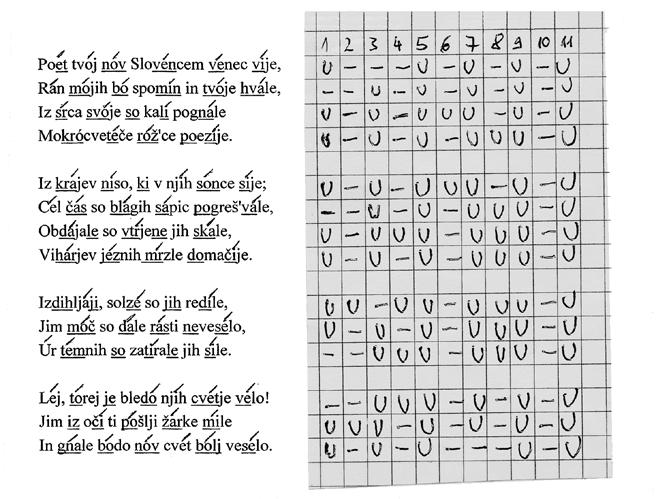 Poét tvój nóv Slovéncem vénec víje,
Rán mójih bó spomín in tvóje hvále,
Iz sŕca svóje so kalí pognále
Mokrócvetéče róž'ce poezíje.
Iz krájev níso, ki v njíh sónce síje;
Cél čás so blágih sápic pogreš'vále,
Obdájale so vtŕjene jih skále,
Vihárjev jéznih mŕzle domačíje.
Izdihljáji, solzé so jih redíle,
Jim móč so dále rásti nevesélo,
Úr témnih so zatírale jih síle.
Léj, tórej je bledó njíh cvétje vélo!
Jim iz očí ti póšlji žárke míle
In gnále bódo nóv cvét bólj vesélo.
1 2 3 4 5 6 7 8 9 10 11
U – – – U – U – U – U
– – U – U – U – U – U
U – U – U U U – U – U
U – U – U – U U U – U
U – U – U U U – U – U
– – U – U – U U U – U
U – U U U – U U U – U
U – U – U – U U U – U
U U – U U – U U U – U
U – U – U – U U U – U
– – U U U – U U U – U
– – U U U – U – U – U
U U U – U – U – U – U
U – U – U – – U – U